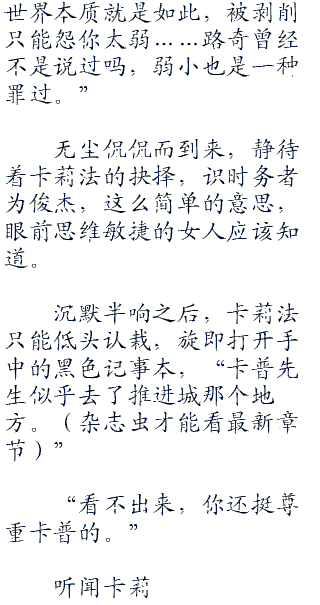 世界本质就是如此，被剥削
只能怨你太弱……路奇曾经
不是说过吗，弱小也是一种
罪过。”
无尘侃侃而到来，静待
着卡莉法的抉择，识时务者
为俊杰，这么简单的意思，
眼前思维敏捷的女人应该知
道。
沉默半响之后，卡莉法
只能低头认栽，旋即打开手
中的黑色记事本，“卡普先
生似乎去了推进城那个地
方。（杂志虫才能看最新章
节）”
“看不出来，你还挺尊
重卡普的。”
听闻卡莉